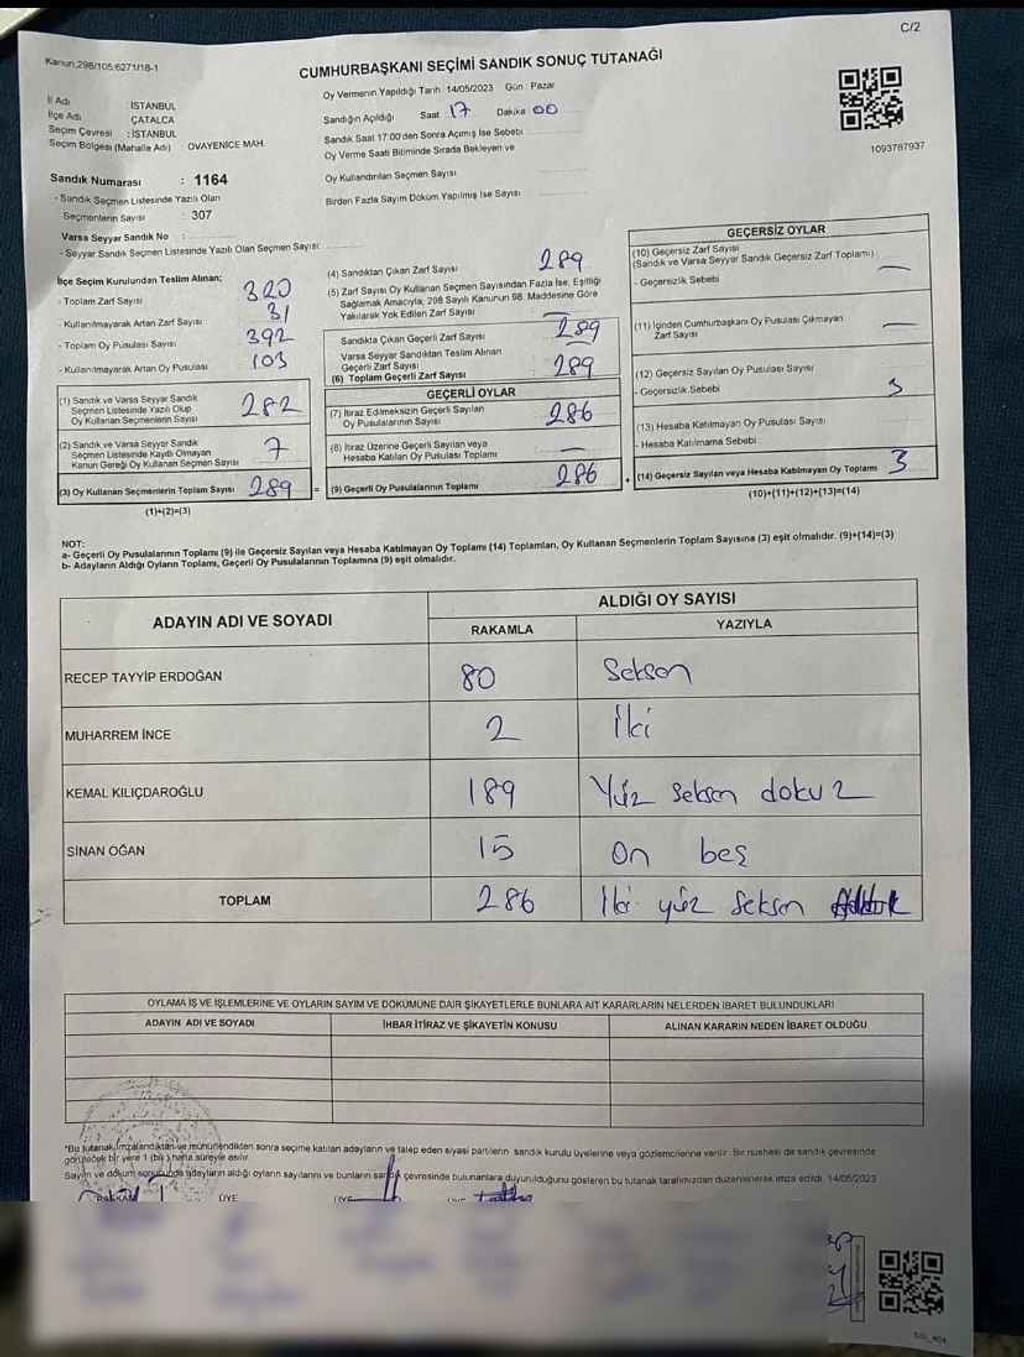 C/2
Kanun,298/105,6271/18-1
CUMHURBAŞKANI SEÇİMİ SANDIK SONUÇ TUTANAĞI
İl Adı : İSTANBUL
İlçe Adı : ÇATALCA
Seçim Çevresi : İSTANBUL
Seçim Bölgesi (Mahalle Adı) : OVAYENİCE MAH.
Oy Vermenin Yapıldığı Tarih : 14/05/2023 Gün : Pazar
Sandığın Açıldığı Saat 17 Dakika 00
Sandık Saat 17:00'den Sonra Açılmış İse Sebebi
Oy Verme Saati Bitiminde Sırada Bekleyen ve
Oy Kullandırılan Seçmen Sayısı
Birden Fazla Sayım Döküm Yapılmış İse Sayısı
1093787937
Sandık Numarası : 1164
- Sandık Seçmen Listesinde Yazılı Olan
Seçmenlerin Sayısı : 307
Varsa Seyyar Sandık No :
- Seyyar Sandık Seçmen Listesinde Yazılı Olan Seçmen Sayısı:
İlçe Seçim Kurulundan Teslim Alınan;
- Toplam Zarf Sayısı 320
- Kullanılmayarak Artan Zarf Sayısı 31
- Toplam Oy Pusulası Sayısı 392
- Kullanılmayarak Artan Oy Pusulası 103
(1) Sandık ve Varsa Seyyar Sandık
Seçmen Listesinde Yazılı Olup
Oy Kullanan Seçmenlerin Sayısı 282
(2) Sandık ve Varsa Seyyar Sandık
Seçmen Listesinde Kayıtlı Olmayan
Kanun Gereği Oy Kullanan Seçmen Sayısı 7
(3) Oy Kullanan Seçmenlerin Toplam Sayısı 289 =
(1)+(2)=(3)
(4) Sandıktan Çıkan Zarf Sayısı 289
(5) Zarf Sayısı Oy Kullanan Seçmen Sayısından Fazla İse, Eşitliği
Sağlamak Amacıyla, 298 Sayılı Kanunun 98. Maddesine Göre
Yakılarak Yok Edilen Zarf Sayısı —
Sandıkta Çıkan Geçerli Zarf Sayısı 289
Varsa Seyyar Sandıktan Teslim Alınan
Geçerli Zarf Sayısı —
(6) Toplam Geçerli Zarf Sayısı 289
GEÇERLİ OYLAR
(7) İtiraz Edilmeksizin Geçerli Sayılan
Oy Pusulalarının Sayısı 286
(8) İtiraz Üzerine Geçerli Sayılan veya
Hesaba Katılan Oy Pusulası Toplamı —
(9) Geçerli Oy Pusulalarının Toplamı 286 +
GEÇERSİZ OYLAR
(10) Geçersiz Zarf Sayısı
(Sandık ve Varsa Seyyar Sandık Geçersiz Zarf Toplamı)
- Geçersizlik Sebebi —
(11) İçinden Cumhurbaşkanı Oy Pusulası Çıkmayan
Zarf Sayısı —
(12) Geçersiz Sayılan Oy Pusulası Sayısı
- Geçersizlik Sebebi 3
(13) Hesaba Katılmayan Oy Pusulası Sayısı
- Hesaba Katılmama Sebebi
(14) Geçersiz Sayılan veya Hesaba Katılmayan Oy Toplamı 3
(10)+(11)+(12)+(13)=(14)
NOT:
a- Geçerli Oy Pusulalarının Toplamı (9) ile Geçersiz Sayılan veya Hesaba Katılmayan Oy Toplamı (14) Toplamları, Oy Kullanan Seçmenlerin Toplam Sayısına (3) eşit olmalıdır. (9)+(14)=(3)
b- Adayların Aldığı Oyların Toplamı, Geçerli Oy Pusulalarının Toplamına (9) eşit olmalıdır.
ADAYIN ADI VE SOYADI ALDIĞI OY SAYISI
RAKAMLA YAZIYLA
RECEP TAYYİP ERDOĞAN 80 Seksen
MUHARREM İNCE 2 İki
KEMAL KILIÇDAROĞLU 189 Yüz seksen dokuz
SİNAN OĞAN 15 on beş
TOPLAM 286 İki yüz seksen
OYLAMA İŞ VE İŞLEMLERİNE VE OYLARIN SAYIM VE DÖKÜMÜNE DAİR ŞİKAYETLERLE BUNLARA AİT KARARLARIN NELERDEN İBARET BULUNDUKLARI
ADAYIN ADI VE SOYADI İHBAR İTİRAZ VE ŞİKAYETİN KONUSU ALINAN KARARIN NEDEN İBARET OLDUĞU
*Bu tutanak imzalandıktan ve mühürlendikten sonra seçime katılan adayların ve talep eden siyasi partilerin sandık kurulu üyelerine veya gözlemcilerine verilir. Bir nüshası da sandık çevresinde
görülecek bir yere 1 (bir) hafta süreyle asılır.
Sayım ve döküm sonucunda adayların aldığı oyların sayılarını ve bunların sandık çevresinde bulunanlara duyurulduğunu gösteren bu tutanak tarafımızdan düzenlenerek imza edildi. 14/05/2023
BAŞKAN ÜYE ÜYE